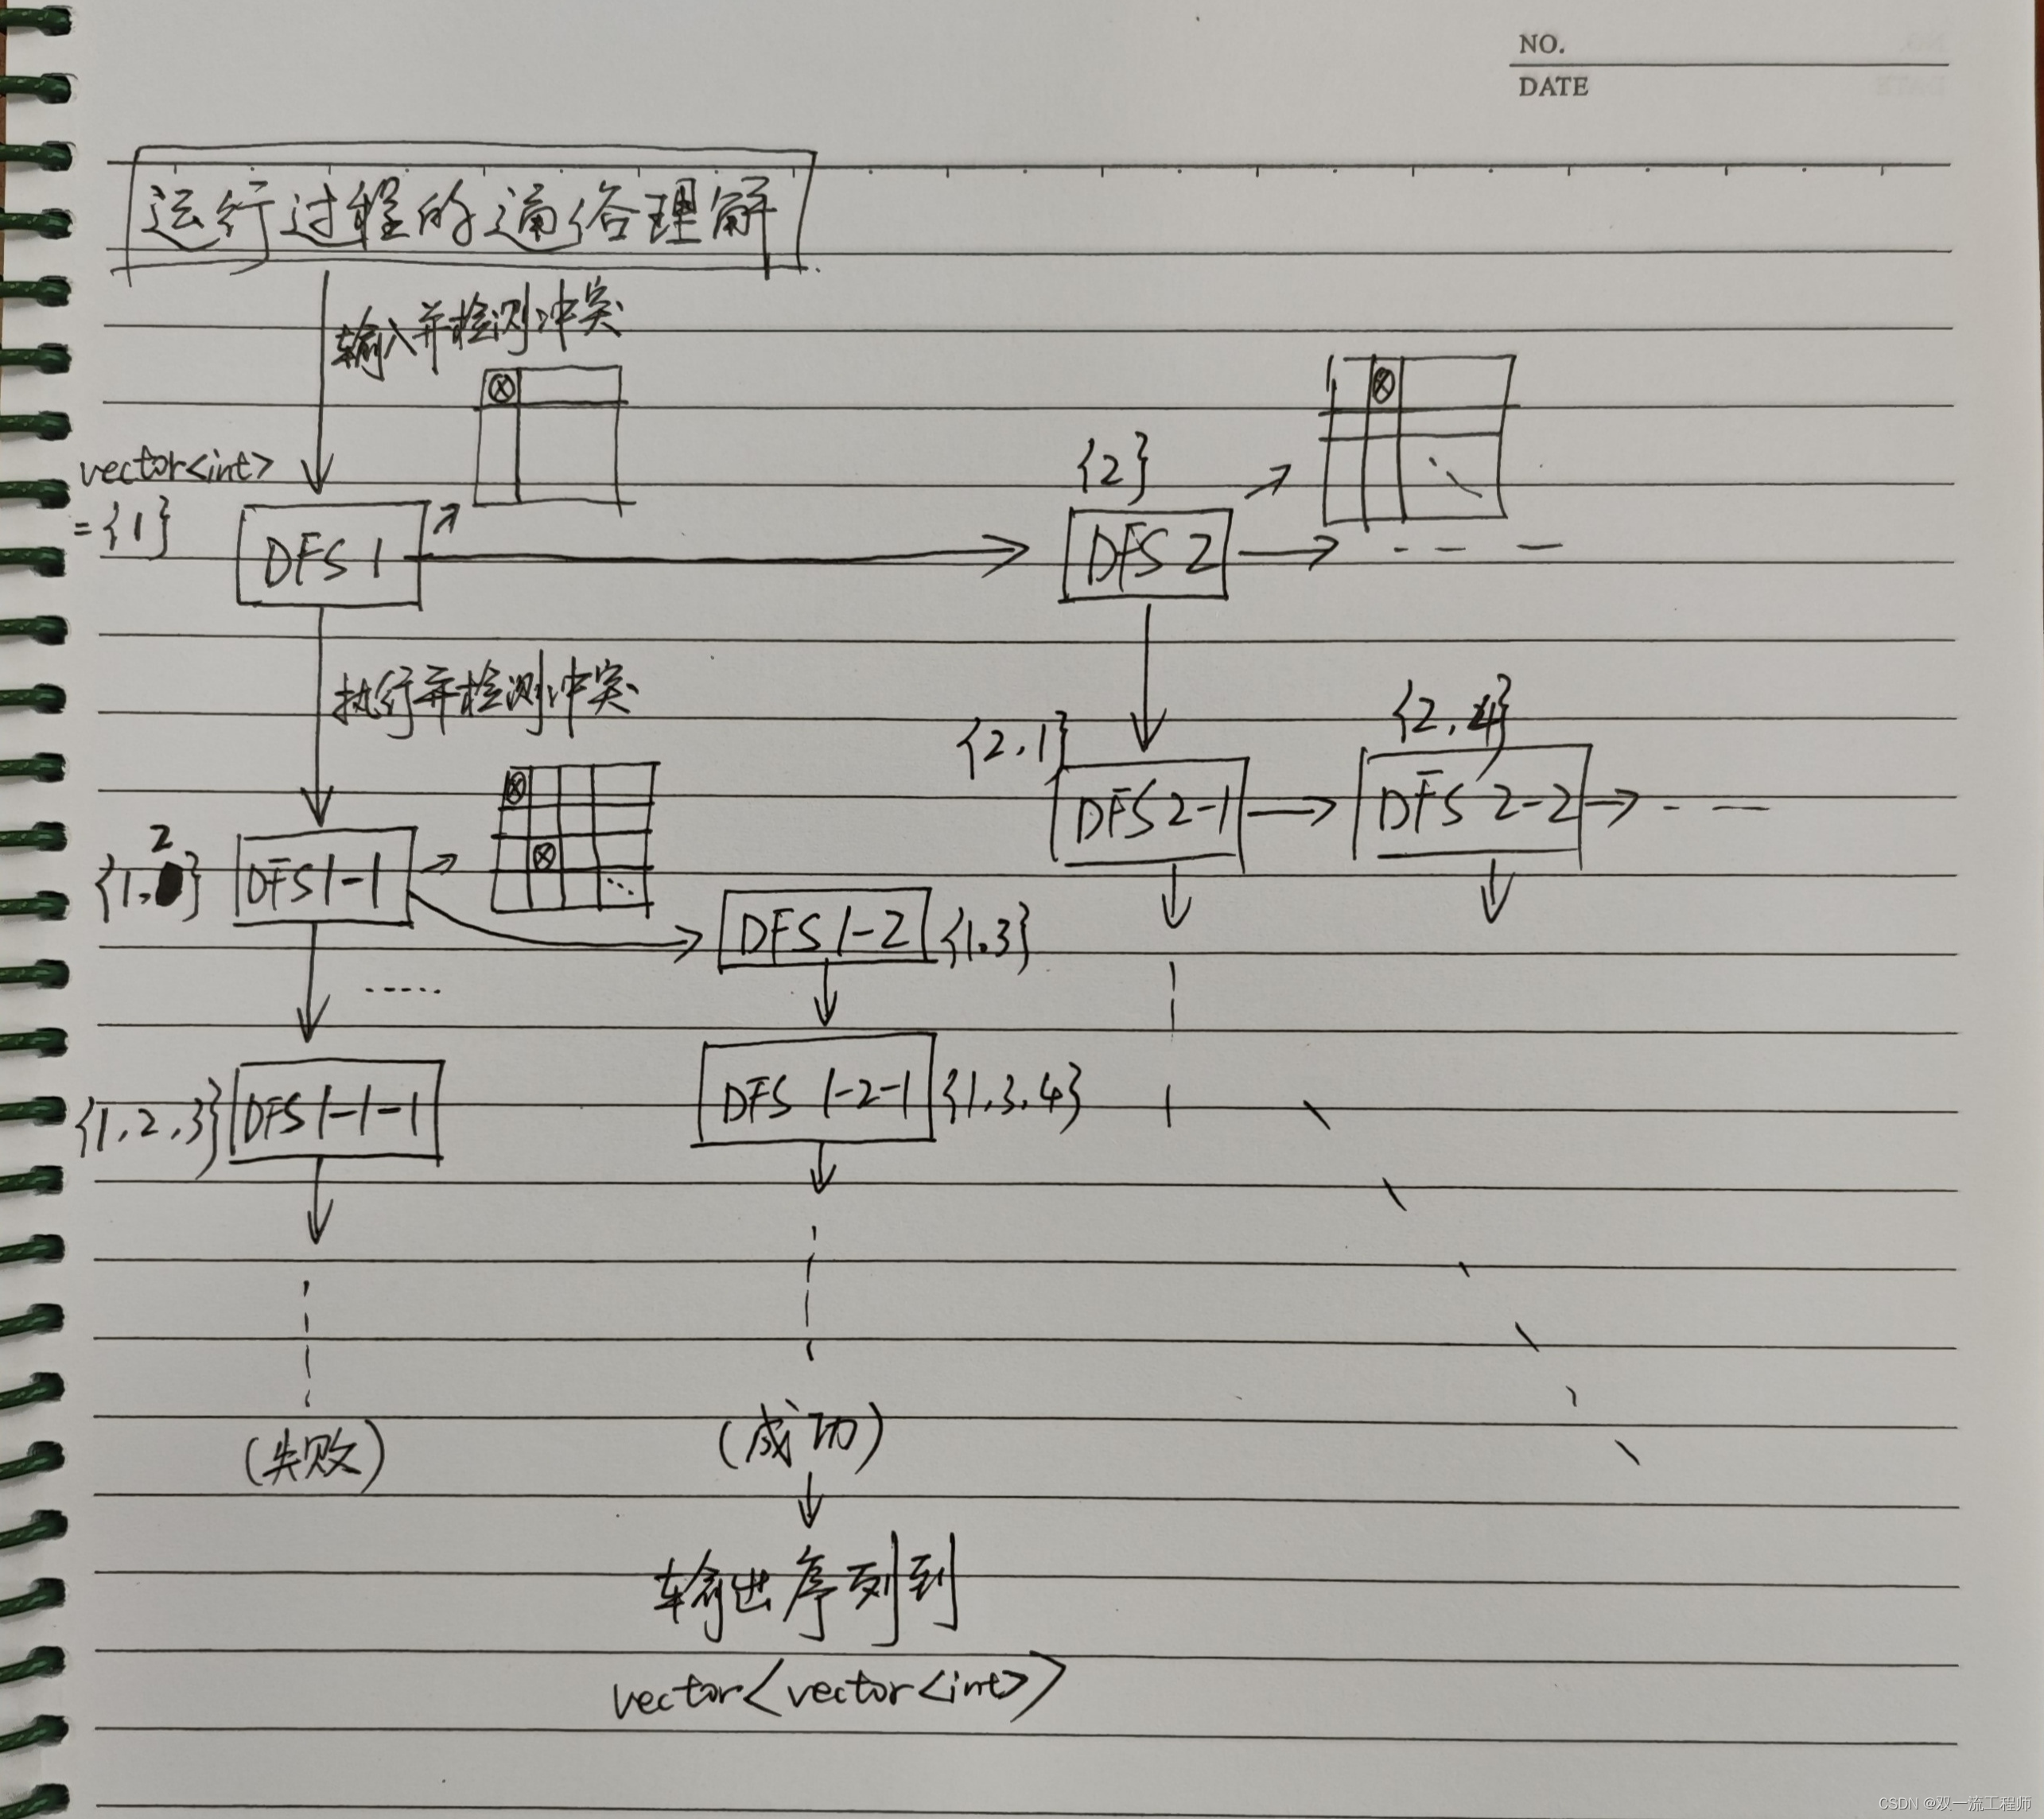 NO.
DATE
运行过程的通俗理解
输入并检测冲突
vector<int>
={1}
DFS 1
{2}
DFS 2
执行并检测冲突
{2,1}
DFS 2-1
{2,4}
DFS 2-2
2
{1, }
DFS 1-1
DFS 1-2 {1.3}
{1,2,3} DFS 1-1-1
DFS 1-2-1 {1.3.4}
(失败)
(成功)
输出序列到
vector<vector<int>>
CSDN @双一流工程师